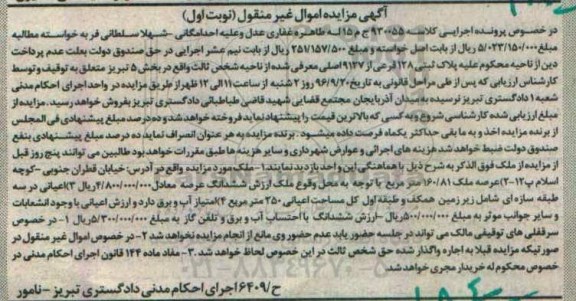 آگهی مزایده اموال غیر منقول (نوبت اول)
در خصوص پرونده اجرایی کلاسه ۹۳۰۰۵۵ ج م ۱۵ له طاهره غفاری عدل وعلیه احدامگانی -شهلا سلطانی فر به خواسته مطالبه
مبلغ ۵/۰۲۳/۱۵۰/۰۰۰ ریال از بابت اصل خواسته و مبلغ ۲۵۱/۱۵۷/۵۰۰ ریال از بابت نیم عشر اجرایی در حق صندوق دولت بعلت عدم پرداخت
دین از ناحیه محکوم علیه پلاک ثبتی ۱۲۸ فرعی از ۹۱۲۷ اصلی معرفی شده از ناحیه شخص ثالث واقع در بخش ۵ تبریز متعلق به توقیف و توسط
کارشناس ارزیابی که پس از طی مراحل قانونی به تاریخ ۹۶/۹/۲۰ روز ۲ شنبه از ساعت ۱۱ الی ۱۲ ظهر از طریق مزایده در واحد اجرای احکام مدنی
شعبه ۱ دادگستری تبریز نرسیده به میدان آذربایجان مجتمع قضایی شهید قاضی طباطبائی دادگستری تبریز بفروش خواهد رسید. مزایده از
مبلغ ارزیابی شده کارشناسی شروع و به کسی که بالاترین قیمت را پیشنهاد نماید فروخته خواهد شد و ده درصد مبلغ پیشنهادی فی المجلس
از برنده مزایده اخذ و به ما بقی حداکثر یکماه فرصت داده میشود . برنده مزایده به هر عنوان انصراف نماید ده درصد مبلغ پیشنهادی بنفع
صندوق دولت ضبط خواهد شد هزینه های اجرائی و عوارض شهرداری و سایر هزینه ها طبق مقررات خواهد بود طالبین می توانند پنج روز قبل
از مزایده از ملک فوق الذکر به شرح ذیل با هماهنگی این واحد بازدید نمایند: ۱- ملک مورد مزایده واقع در آدرس: خیابان قطران جنوبی -کوچه
اسلام پ۱۲-۲) عرصه ملک ۱۶۰/۸۱ متر مربع با توجه به محل وقوع ملک ارزش ششدانگ عرصه معادل ۴/۸۰۰/۰۰۰/۰۰۰ ریال ۳) اعیانی در سه
طبقه سازه ای شامل زیر زمین همکف و طبقه اول کل مساحت اعیانی ۲۵۰ متر مربع ۴) امتیاز آب و برق دارد و ارزش اعیانی با وجود انشعابات
و سایر جوانب موثر به مبلغ ۵۰۰/۰۰۰/۰۰۰ ریال -ارزش ششدانگ با احتساب آب و برق و تلفن گاز به مبلغ ۵/۳۰۰/۰۰۰/۰۰۰ ریال ۱- در خصوص
سرقفلی های توقیفی مالک می تواند در جلسه حضور یابد عدم حضور وی مانع از انجام مزایده نخواهد شد ۲- در خصوص اموال غیر منقول در
صورتیکه مزایده قبلا به اجاره واگذار شده حق شخص ثالث در این خصوص لحاظ خواهد شد. ۳- مفاد ماده ۱۴۴ قانون اجرای احکام مدنی در
خصوص محکوم له خریدار مجری خواهد شد.
ح/۶۴۰۹ اجرای احکام مدنی دادگستری تبریز -نامور